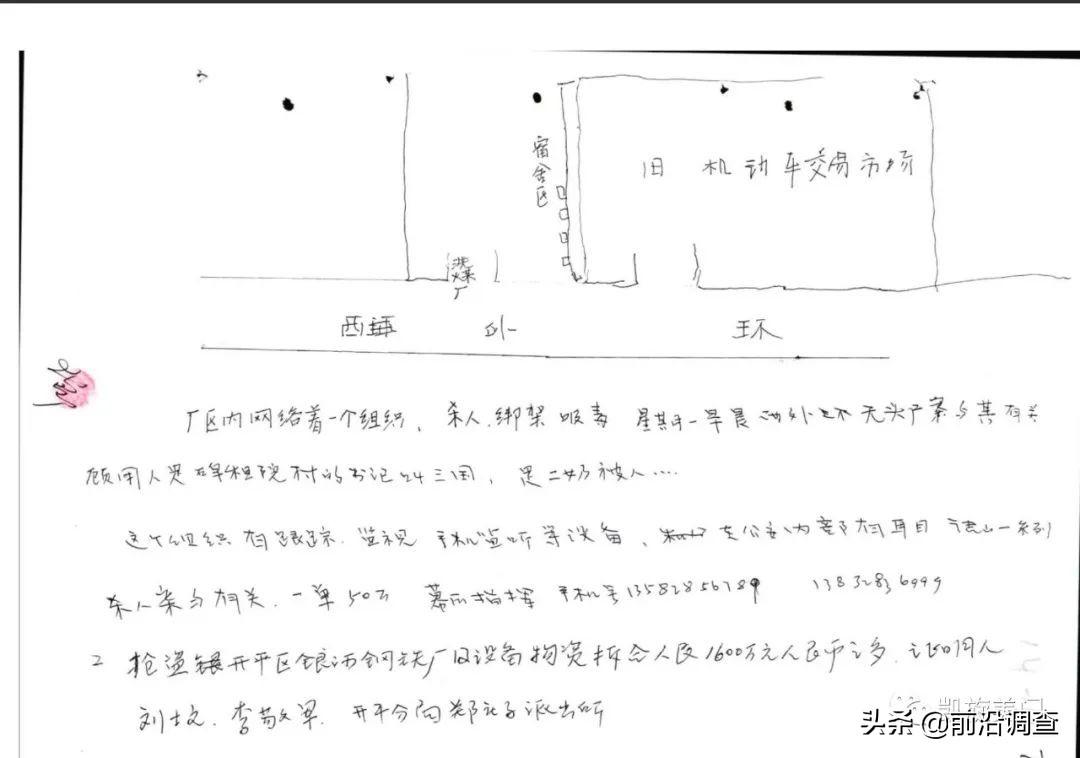 宿舍区
旧 机动车交易市场
厂
西 外 环
厂区内网络着一个组织、杀人.绑架 吸毒 星期一早晨 西外环 无头尸案与其有关
顾用人是 村的书记 三国，是二奶被人....
这个组织有跟踪.监视 手机监听等设备、在公安内部有耳目 一系列
杀人案与有关.一单50万 幕后指挥 手机号13582856789 13832836999
2 抢盗 开平区银 钢铁厂 设备物资折合人民1600万元人民币之多.证明人
刘 文.李 开平分局郑 子派出所
头条 @前沿调查